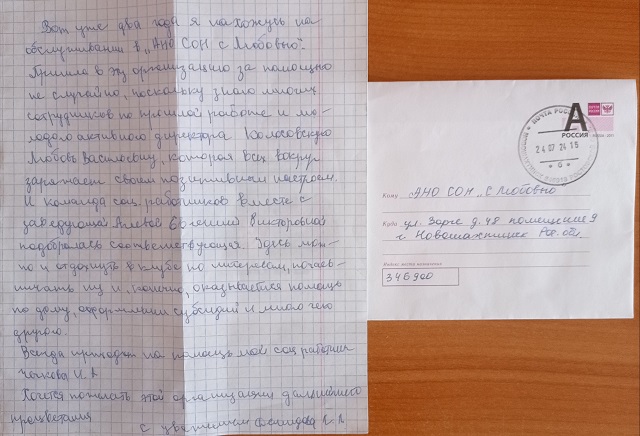 Вот уже два года я нахожусь на
обслуживании в „АНО СОН "С Любовью".
Пришла в эту организацию за помощью
не случайно, поскольку знаю многих
сотрудников по прошлой работе и мо-
лодого активного директора Колосовскую
Любовь Васильевну, которая всех вокруг
заряжает своим позитивным настроем.
И команда соц. работников вместе с
заведующей Евгенией Викторовной
подобралась соответствующая. Здесь мож-
но и отдохнуть в клубе по интересам, почаев-
ничать ну и, конечно, оказывается помощь
по дому, оформлении субсидий и много чего
другого.
Всегда приходит на помощь мой соц. работник
И.
Хочется пожелать этой организации дальнейшего
процветания
с уважением
ПОЧТА РОССИИ
24 07 24 15
А
РОССИЯ
Кому АНО СОН "С Любовью"
Куда ул. Зорге д. 48 помещение 9
г. Новошахтинск Рос. обл.
Индекс места назначения
346900